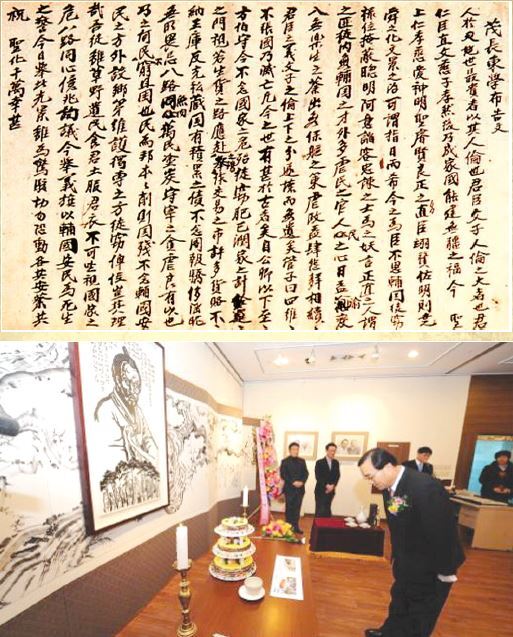 茂長東學布告文
人於世最貴者以其人倫也君臣父子人倫之大者也君
仁臣直父慈子孝然後乃成家國能逮無疆之福今 聖
上仁孝慈愛神明聖睿賢良正直之臣翊贊佐明則堯
舜之化文景之治可謂指日而希今之爲臣不思輔國徒竊
祿位掩蔽聰明阿意諂容忠諫之士爲之妖言正直之人謂
之匪徒內無輔國之才外多虐民之官人民之心日益渝變
入無樂生之業出無保軀之策虐政益肆惡聲相續
君臣之義父子之倫上下之分遂壞而無遺矣管子曰四維
不張國乃滅亡方今之世有甚於古者矣自公卿以下至
方伯守令不念國家之危殆徒竊肥己潤家之計銓選
之門視若生貨之路應試之場交易之市許多貨賂不
納王庫反充私藏國有積累之債不念圖報驕侈淫昵
無所畏忌八路魚肉萬民塗炭守宰之貪虐良有以也
乃之何民窮且困也民爲邦本本削則國殘不念輔國安
民之方外設鄕第惟謀獨專之方徒竊俸位豈其理
哉吾徒雖草野遺民食君土服君衣不可坐視國家之
危八路同心億兆詢議今擧義旗以輔國安民爲死生
之誓今日擧此光景雖爲驚駭切勿恐動各安其業共
祝 聖化千萬幸甚